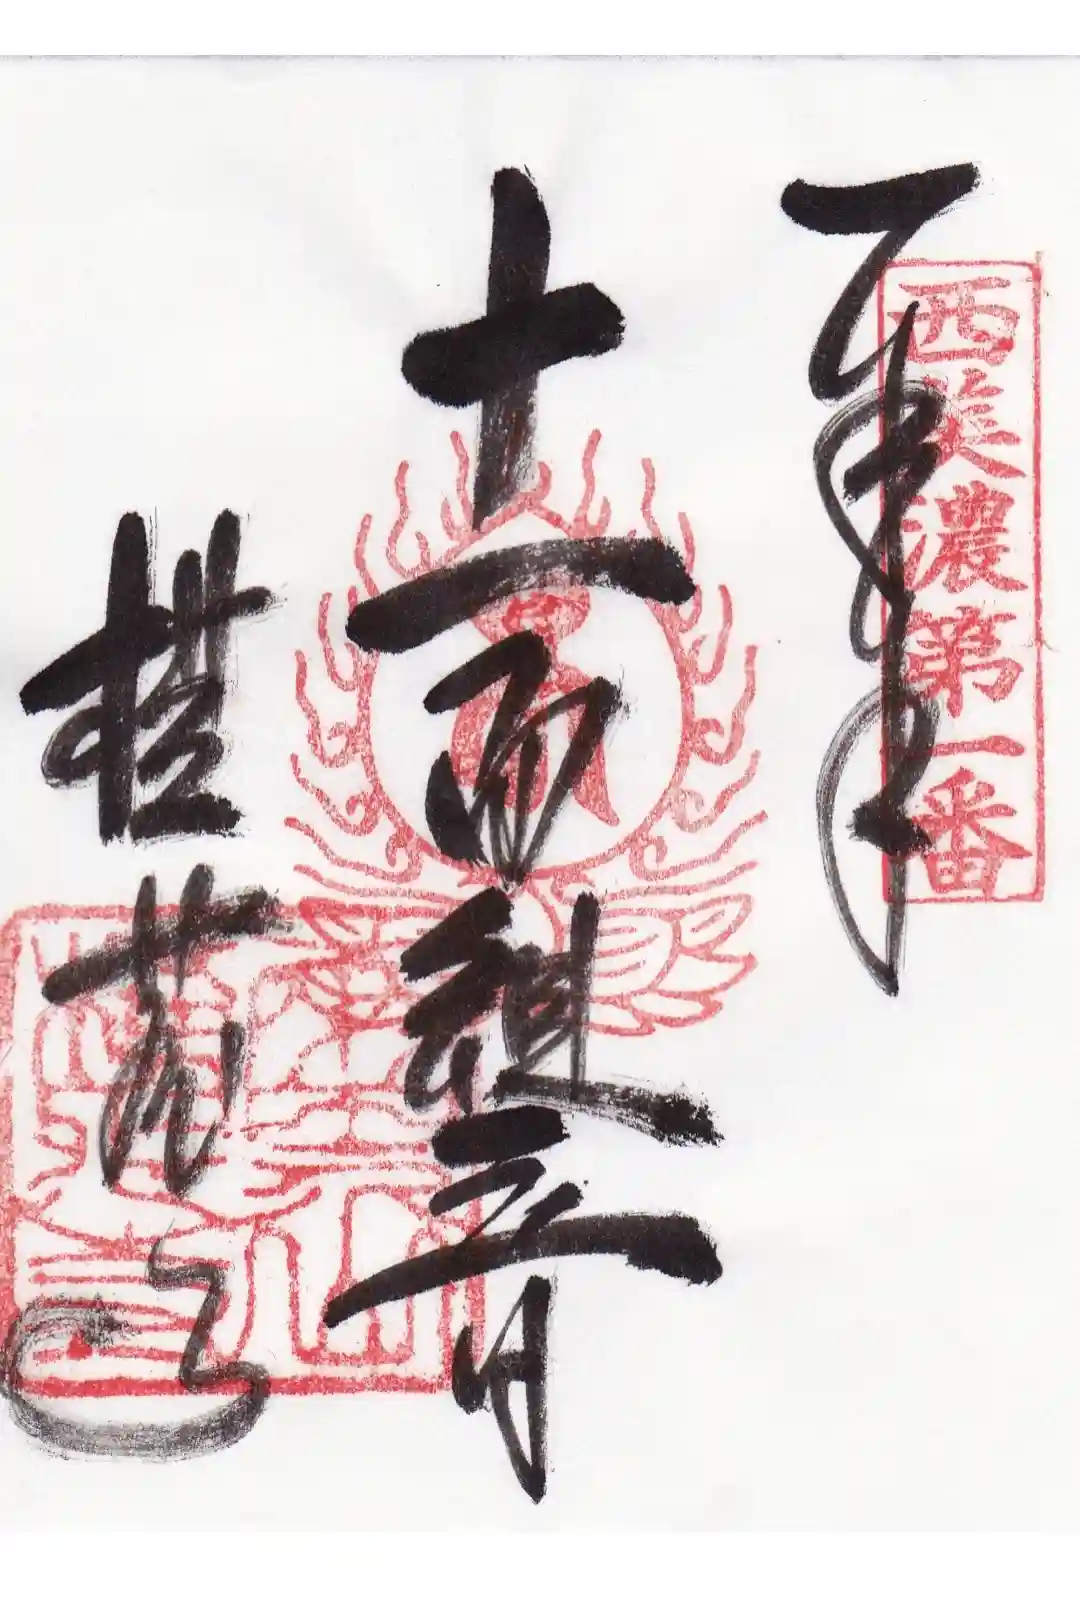 奉拝
西美濃第一番
十一面観世音
横蔵寺